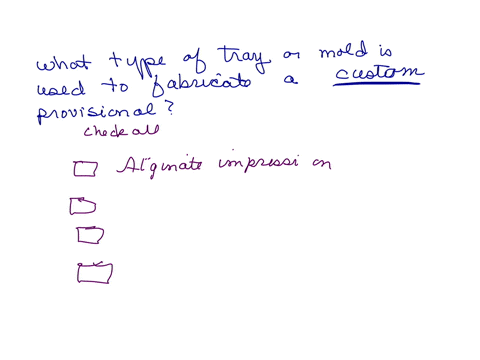 what type of tray or mold is
used to fabricate a custom
provisional?
check all
Alginate impression